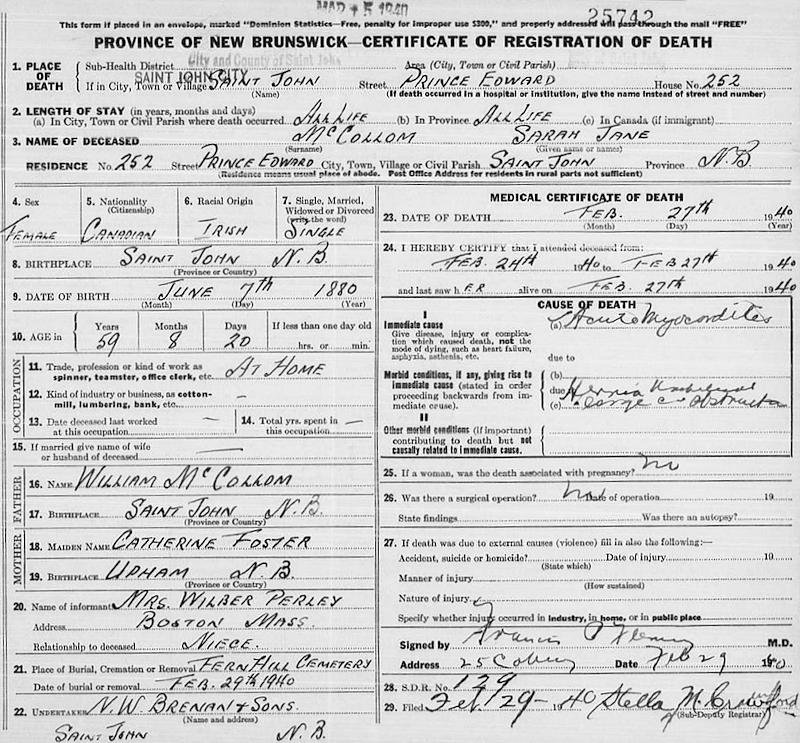 MAR 15 1940
25742
This form if placed in an envelope, marked "Dominion Statistics—Free, penalty for improper use $300," and properly addressed will pass through the mail "FREE"
PROVINCE OF NEW BRUNSWICK—CERTIFICATE OF REGISTRATION OF DEATH
City and County of Saint John
1. PLACE OF DEATH
Sub-Health District Area (City, Town or Civil Parish)
SAINT JOHN CITY
If in City, Town or Village SAINT JOHN Street PRINCE EDWARD House No. 252
(Name) (If death occurred in a hospital or institution, give the name instead of street and number)
2. LENGTH OF STAY (in years, months and days)
(a) In City, Town or Civil Parish where death occurred ALL LIFE (b) In Province ALL LIFE (c) In Canada (if immigrant)
3. NAME OF DECEASED McCOLLOM SARAH JANE
(Surname) (Given name or names)
RESIDENCE No. 252 Street PRINCE EDWARD City, Town, Village or Civil Parish SAINT JOHN Province N.B
(Residence means usual place of abode. Post Office Address for residents in rural parts not sufficient)
4. Sex
FEMALE
5. Nationality
(Citizenship)
CANADIAN
6. Racial Origin
IRISH
7. Single, Married,
Widowed or Divorced
(write the word)
SINGLE
8. BIRTHPLACE SAINT JOHN N.B.
(Province or Country)
9. DATE OF BIRTH JUNE 7th 1880
(Month) (Day) (Year)
10. AGE in
Years Months Days If less than one day old
59 8 20 hrs. or min.
OCCUPATION
11. Trade, profession or kind of work as
spinner, teamster, office clerk, etc. AT HOME
12. Kind of industry or business, as cotton-
mill, lumbering, bank, etc. —
13. Date deceased last worked
at this occupation —
14. Total yrs. spent in
this occupation —
15. If married give name of wife
or husband of deceased —
FATHER
16. NAME WILLIAM McCOLLOM
17. BIRTHPLACE SAINT JOHN N.B.
(Province or Country)
MOTHER
18. MAIDEN NAME CATHERINE FOSTER
19. BIRTHPLACE UPHAM N.B.
(Province or Country)
20. Name of informant MRS. WILBER PERLEY
Address BOSTON MASS.
Relationship to deceased NIECE.
21. Place of Burial, Cremation or Removal FERN HILL CEMETERY
Date of burial or removal FEB. 29th 1940
22. UNDERTAKER N.W. BRENAN & SONS.
(Name and address)
SAINT JOHN N.B.
MEDICAL CERTIFICATE OF DEATH
23. DATE OF DEATH FEB. 27th 1940
(Month) (Day) (Year)
24. I HEREBY CERTIFY that I attended deceased from:
FEB. 24th 1940 to FEB 27th 1940
and last saw her alive on FEB. 27th 1940
CAUSE OF DEATH
I
Immediate cause
Give disease, injury or complica-
tion which caused death, not the
mode of dying, such as heart failure,
asphyxia, asthenia, etc.
(a) Acute Myocarditis
due to
Morbid conditions, if any, giving rise to
immediate cause (stated in order
proceeding backwards from im-
mediate cause).
(b)
due to Hernia Umbilical
(c) Large
II
Other morbid conditions (if important)
contributing to death but not
causally related to immediate cause.
25. If a woman, was the death associated with pregnancy? no
26. Was there a surgical operation? no Date of operation 19
State findings Was there an autopsy?
27. If death was due to external causes (violence) fill in also the following:—
Accident, suicide or homicide? Date of injury 19
(State which)
Manner of injury
(How sustained)
Nature of injury
Specify whether injury occurred in industry, in home, or in public place
Signed by Francis M.D.
Address 25 Coburg Date Feb 29 1940
28. S.D.R. No. 129
29. Filed Feb. 29— 1940 Stella M. Crawford
(Sub-Deputy Registrar)